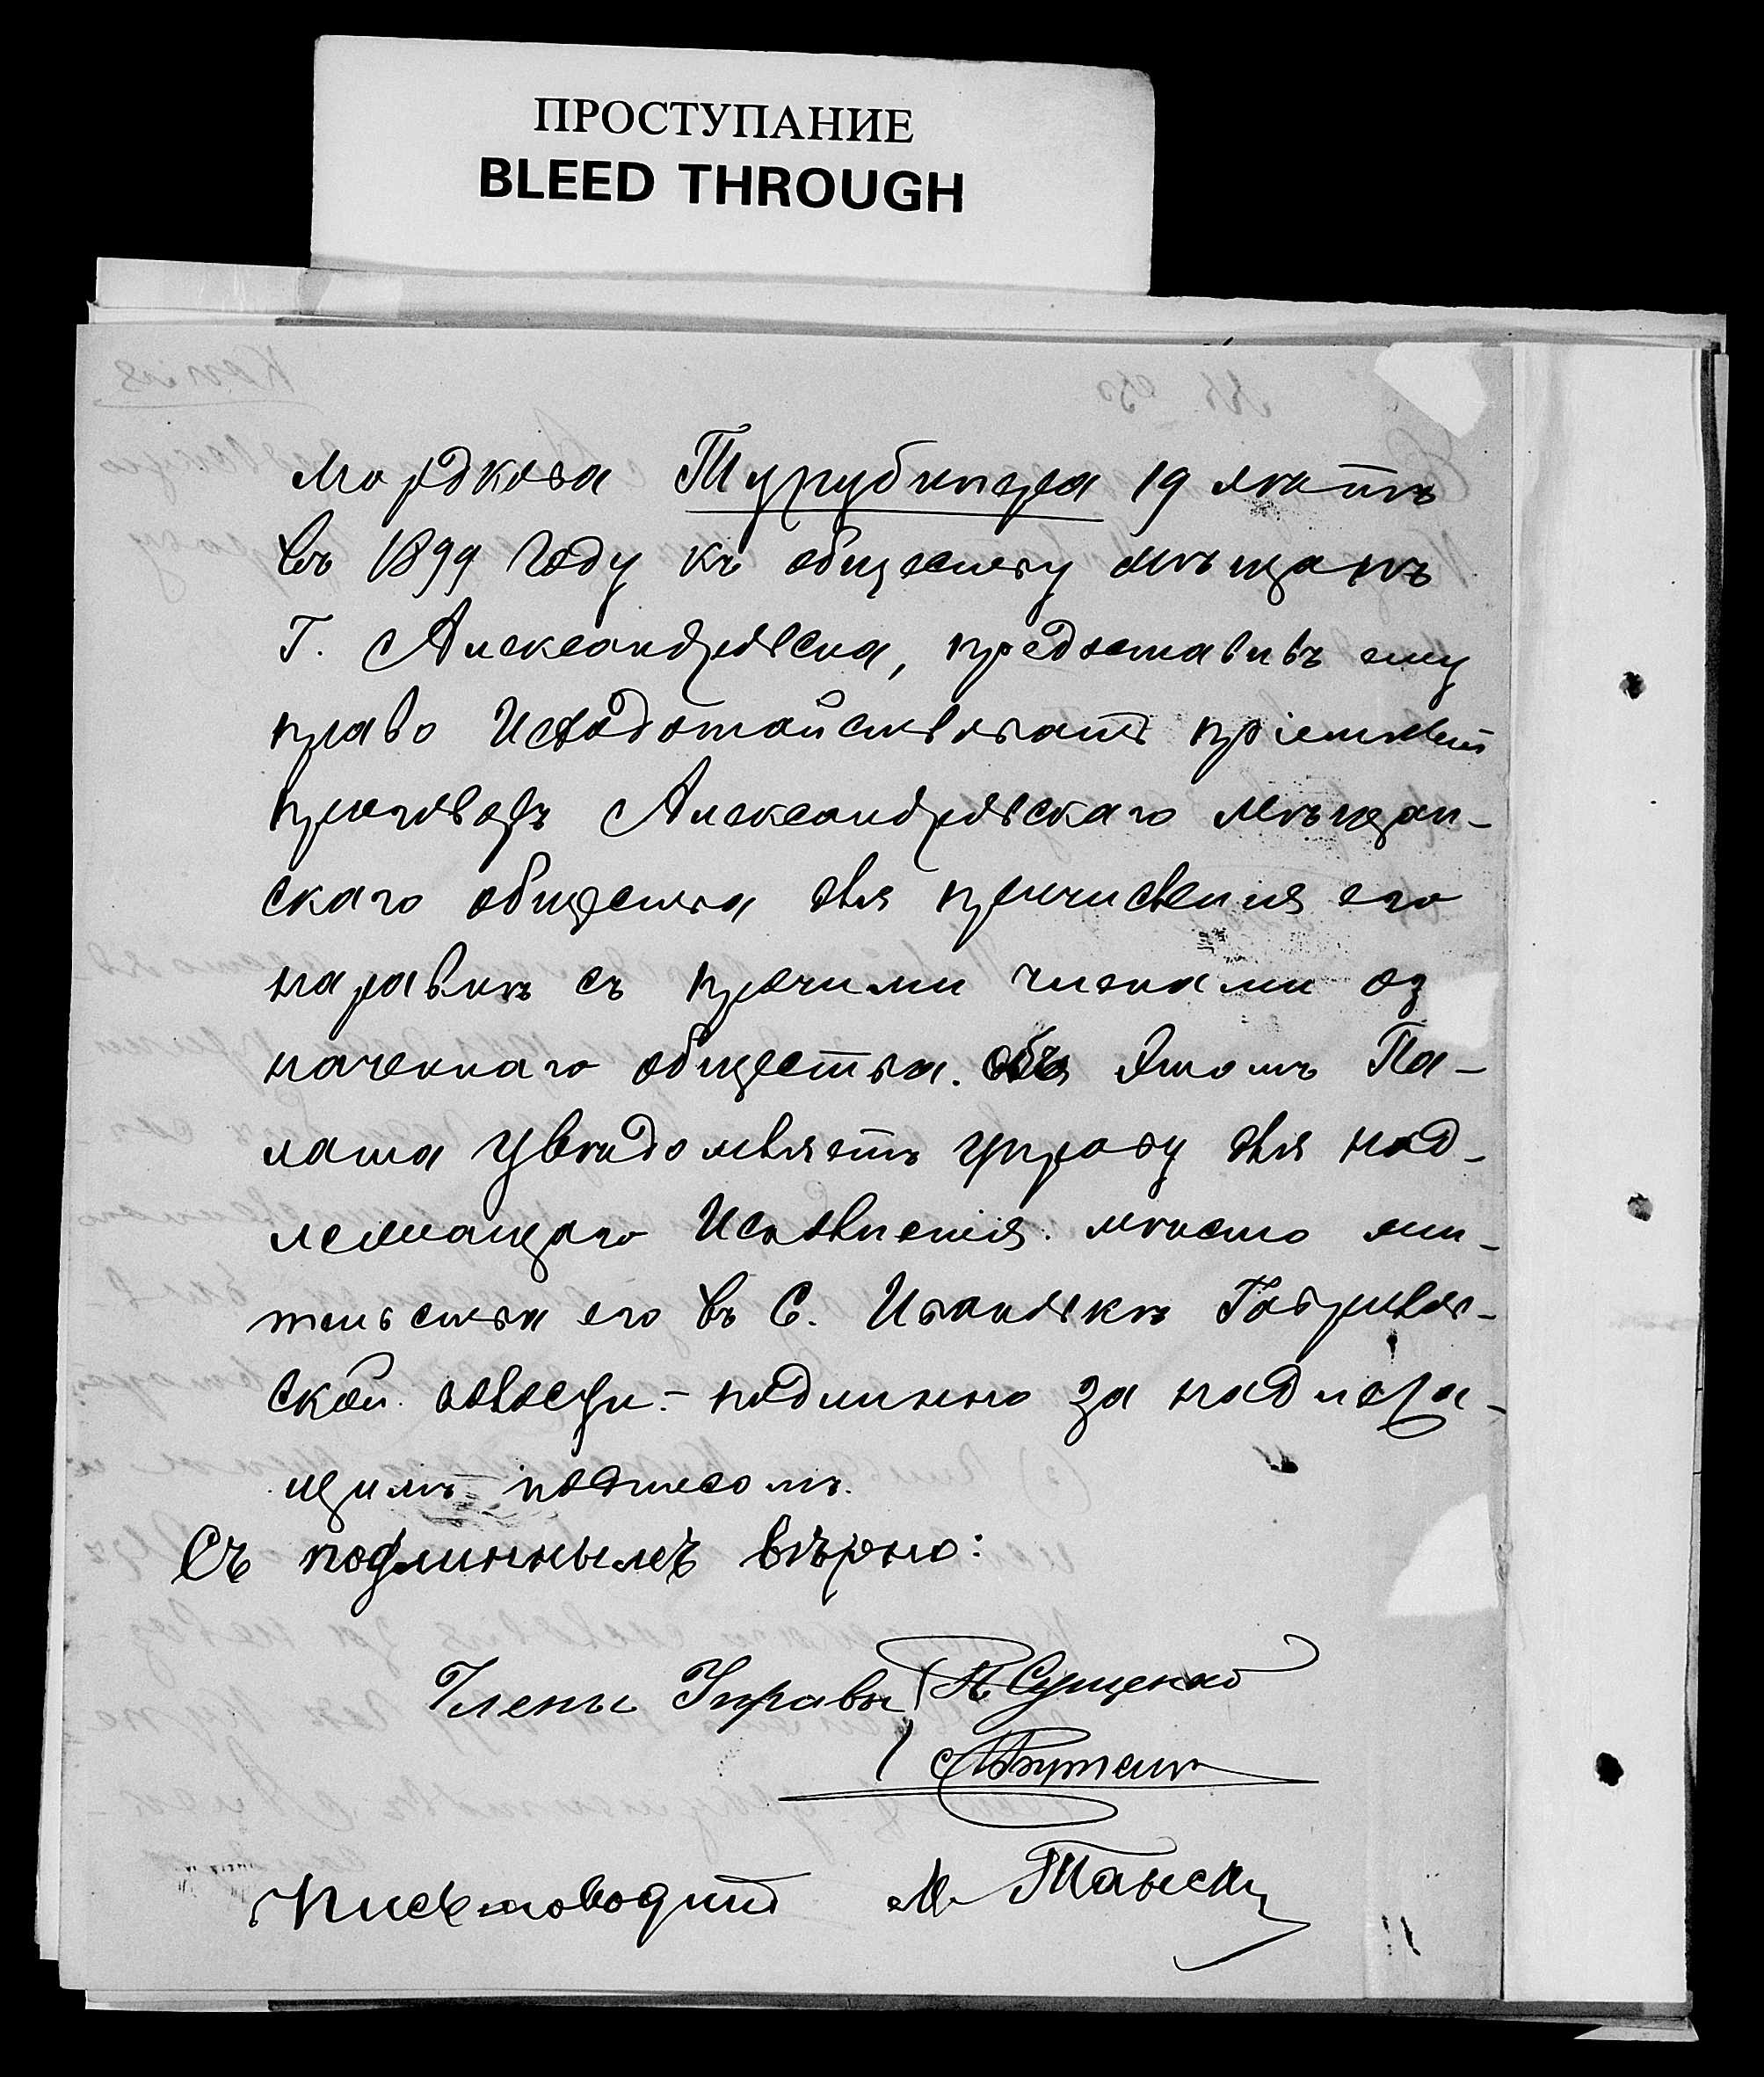 ПРОСТУПАНИЕ
BLEED THROUGH
Мордкова Турубинера 19 лѣтъ
въ 1899 году къ обществу мѣщанъ
Г. Александровска, предоставивъ ему
право исходотайствовать пріемный
приговоръ Александровскаго мѣщан-
скаго общества для причисленія его
наравнѣ съ прочими членами оз
наченнаго общества. Объ этомъ Па-
лата увѣдомляетъ управу для над-
лежащаго исполненія. мѣсто жи-
тельства его въ С. Ивановкѣ Гавриловс-
ской волости. - подлинно за надлежа-
щимъ подписомъ.
Съ подлиннымъ вѣрно:
Члены Управы П. Сущенко
Письмоводит М. Танск